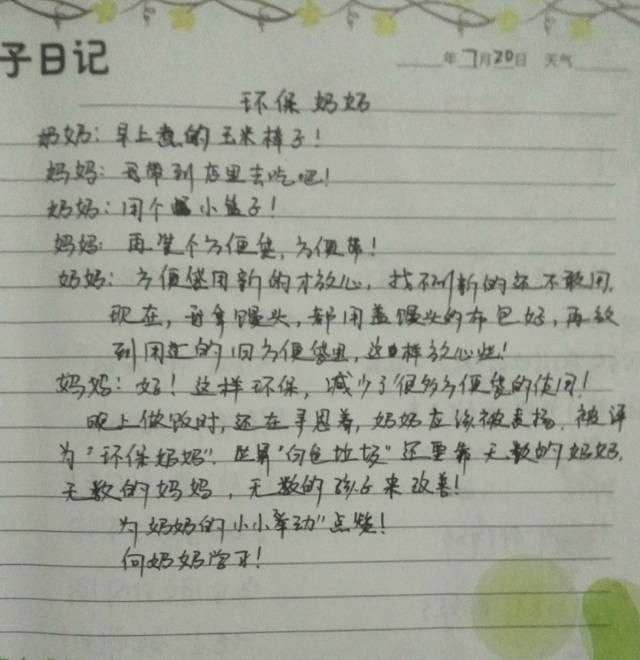 子日记
年7月20日 天气
环保奶奶
奶奶：早上煮的玉米棒子！
妈妈：我带到店里去吃吧！
奶奶：用个小盆子！
妈妈：再套个方便袋，方便带！
奶奶：方便袋用新的才放心，找不到新的还不敢用。
现在，我拿馒头，都用盖馒头的布包好，再放
到用过的旧方便袋里，这样放心些！
妈妈：好！这样环保，减少了很多方便袋的使用！
晚上做饭时，还在寻思着，奶奶应该被表扬，被评
为"环保奶奶"。世界"白色垃圾"还要靠无数的奶奶，
无数的妈妈，无数的孩子来改善！
为奶奶的"小小举动"点赞！
向奶奶学习！